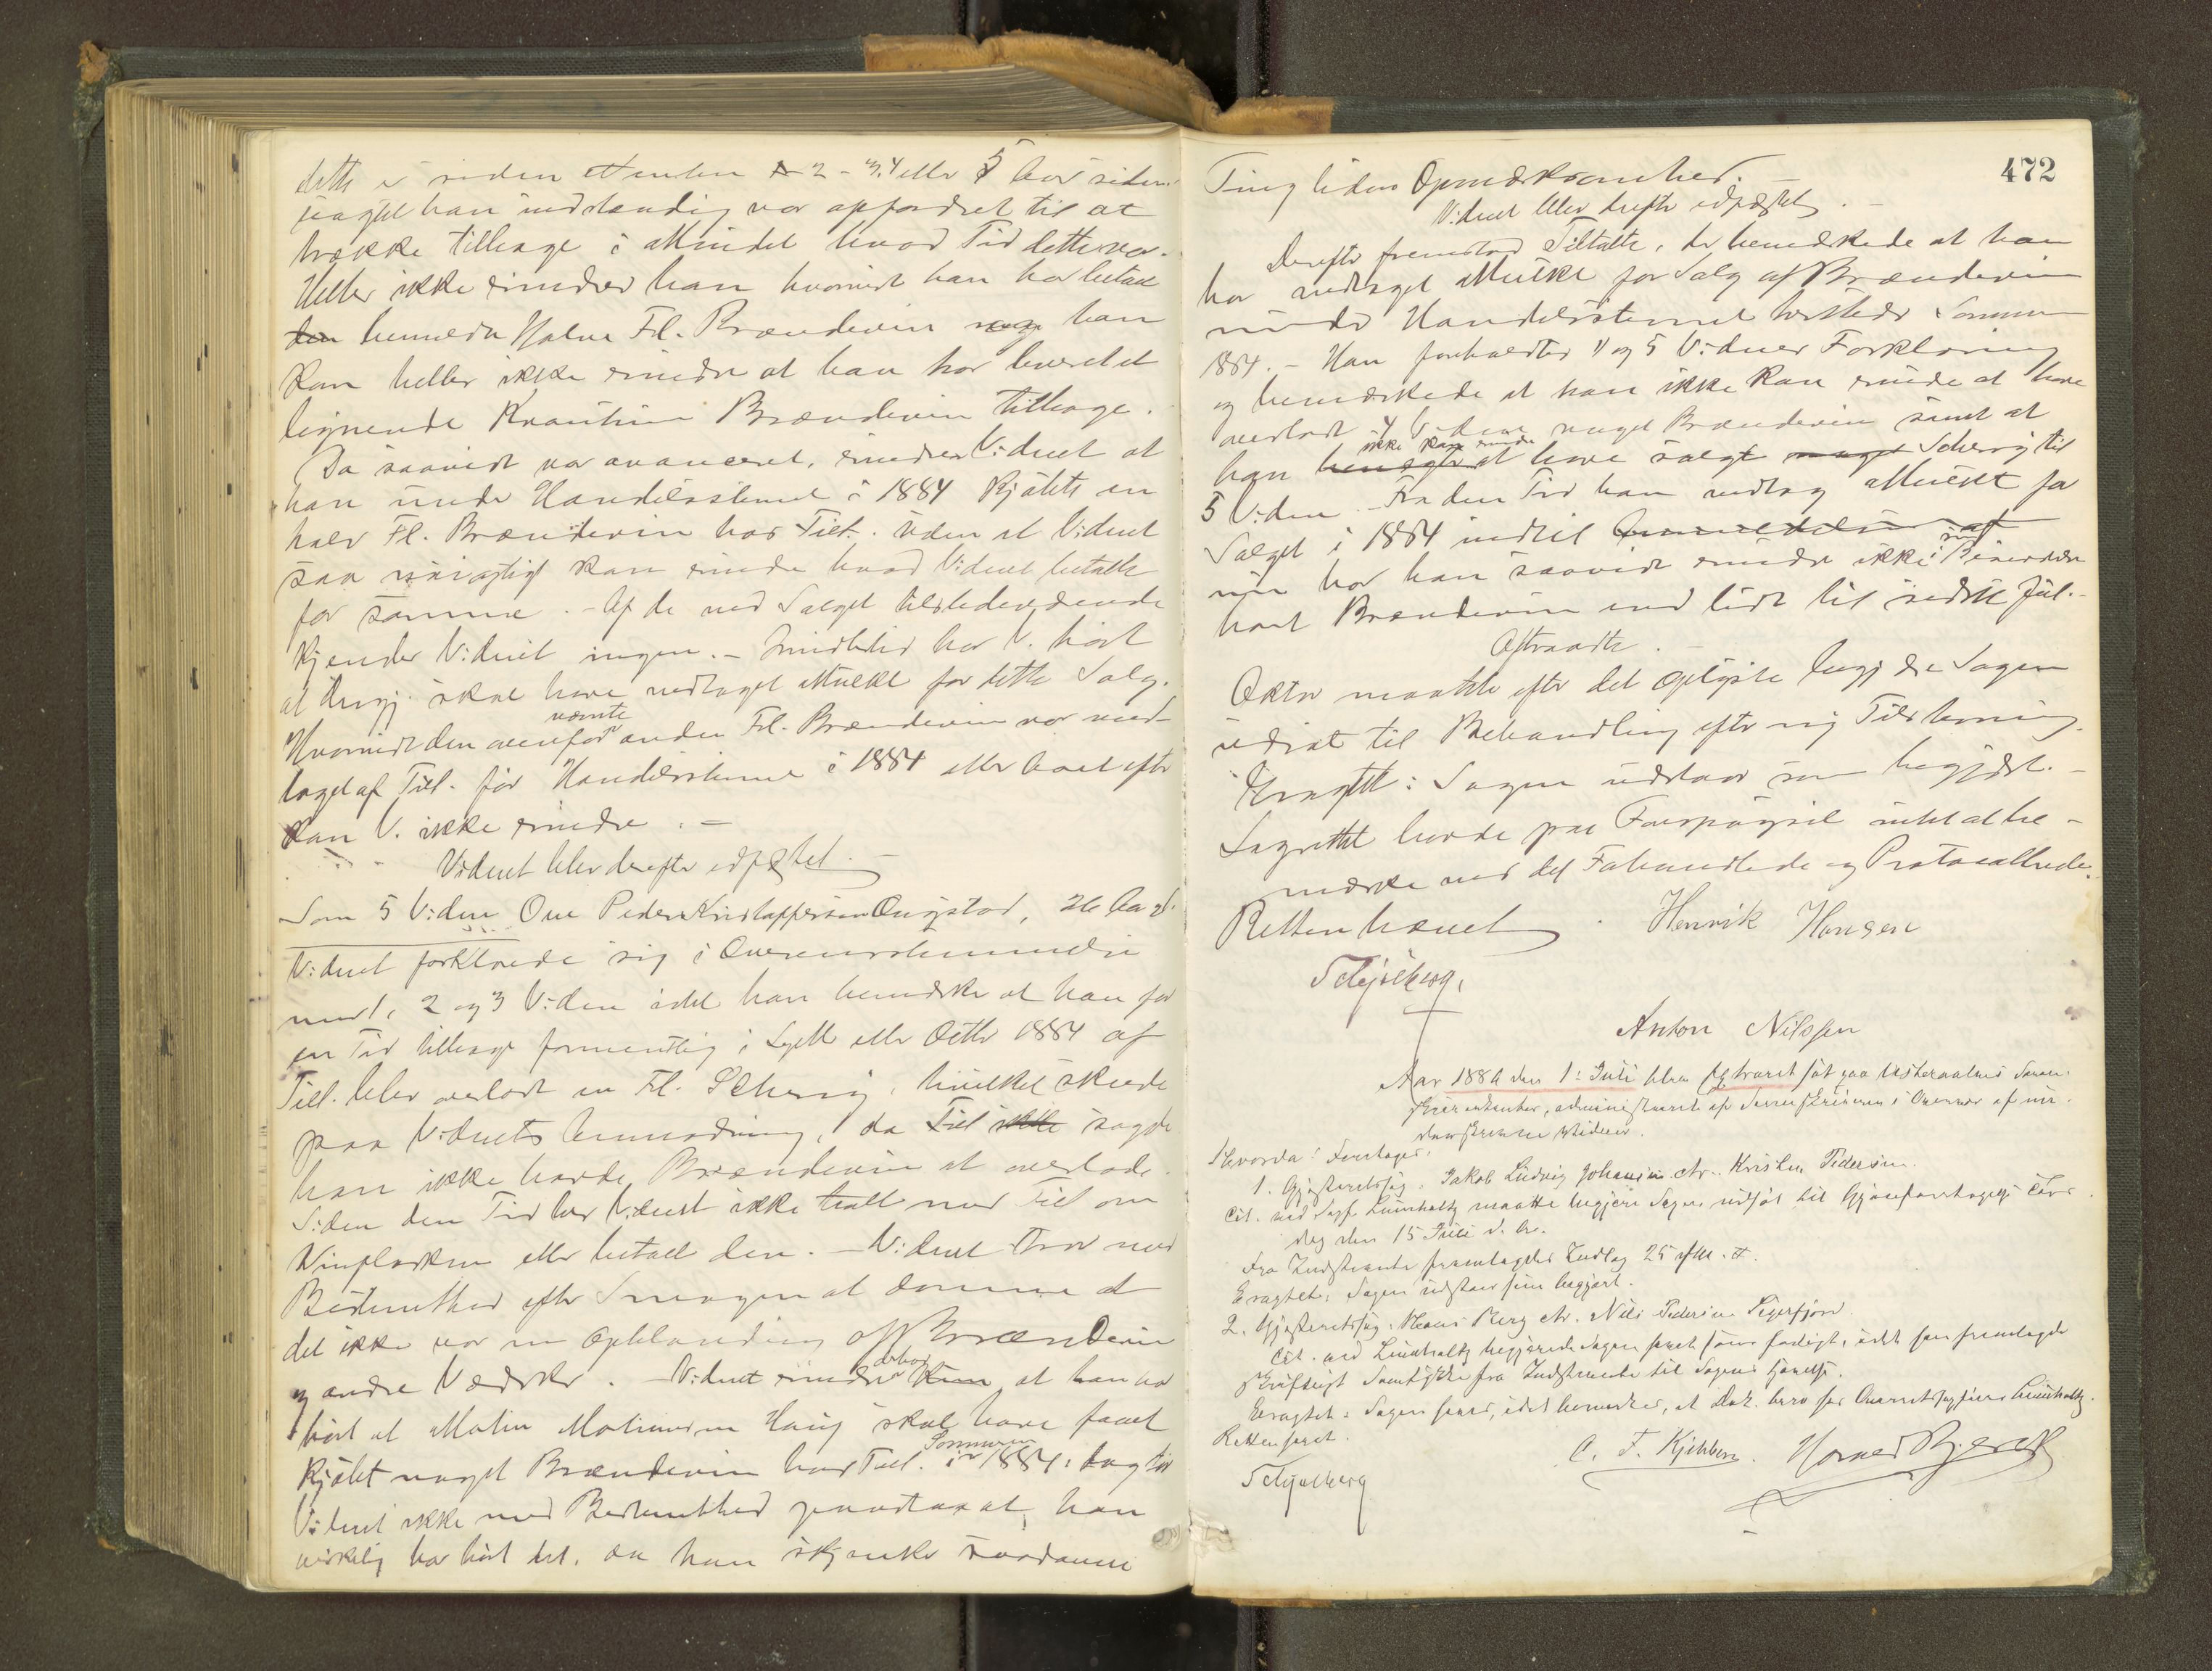 dette er siden 2 - 3, 4 eller 5 Aar siden
uagtet han indstændig var opfordret til at
trække tilbage i Mindet hvad Tid dette var.
Heller ikke erindrer han hvorvidt han har betalt
den bemeldte halve Fl. Brændevin og han
kan heller ikke erindre at han har leveret et
lignende Kvantum Brændevin tilbage.
Da saavidt var avanceret, erindrer Vidnet at
han under Handelsstevnet i 1884 kjøbte en
halv Fl. Brændevin hos Tilt. uden at Vidnet
saa nøiagtigt kan erindre hvad Vidnet betalte
for samme. - Af de ved Salget tilstedeværende
kjender Vidnet ingen. - Imidlertid har V. hørt
at skal have vedtaget Mulkt for dette Salg.
Hvorvidt den ovenfor nævnte anden Fl. Brændevin var mod-
taget af Tilt. før Handelsstevnet i 1884 eller havt efter
kan V. ikke erindre. -
Vidnet blev derefter edfæstet. -
Som 5 Vidne Ove Peder Kristoffersen 26 Aar gl.
Vidnet forklarede sig i Overensstemmelse
med 1, 2 og 3 Vidne idet han bemærker at han for
en Tid tilbage formentlig i Septb eller Octbr 1884 af
Tilt. blev overladt en Fl. Scherry, hvilket skede
paa Vidnets Anmodning, da Tilt ikke sagde
han ikke havde Brændevin at overlade.
Siden den Tid har Vidnet ikke talt med Tilt om
Vinflasken eller betalt den. - Vidnet tror med
Bestemthed efter Smagen at dømme at
det ikke var en Opblanding af Brændevin
og andre Vædsker. - Vidnet erindrer derhos at han har
hørt at Martin Martinussen Haug skal have faaet
kjøbt noget Brændevin hos Tilt. i Sommeren 1884, dog tør
Vidnet ikke med Bestemthed paastaa at han
virkelig har hørt det, da han skjænker saadanne
472
Ting liden Opmærksomhed. -
Vidnet blev derefter edfæstet. -
Derefter fremstod Tiltalte, der bemærkede at han
har vedtaget Mulkt for Salg af Brændevin
under Handelsstevnet hersteds Sommeren
1884. - Han foreholdtes 4 og 5 Vidners Forklaring
og bemærkede at han ikke kan erindre at have
overladt 4 Vidne noget Brændevin samt at
han benægter ikke kan erindre at have solgt noget Scherry til
5 Vidne. - Fra den Tid han vedtog Mulkt for
Salget i 1884 indtil
nu har han saavidt erindres ikke i sin Besiddelse
havt Brændevin end lidt til sidste Jul. -
Aftraadte. -
Aktor maatte efter det oplyste begjære Sagen
udsat til Behandling efter ny Tilstevning.
Eragtet: Sagen udstaar som begjært. -
Lagrettet havde paa Forespørgsel intet at be-
mærke ved det Forhandlede og Protokollerede.
Retten hævet. Henrik Hansen
Schjelberg,
Anton Nilssen
Aar 1886 den 1: Juli blev Extraret sat paa Vesteraalens Soren-
skriverkontor, administreret af Sorenskriveren i Overvær af un-
derskrevne Vidner.
Hvorda: Foretages:
1. Gjæsteretssag: Jakob Ludvig Johansen ctr. Kristen Pedersen.
Cit. ved Sagf. Lumholtz maatte begjære Sagen udsat til Gjenforetagelse Tors-
dag den 15 Juli d. A.
Fra Indstevnte fremlagdes Indlæg 25 f.M. #.
Eragtet: Sagen udstaar som begjært.
2. Gjæsteretssag: Hans Berg ctr. Nils Pedersen Sigerfjord.
Cit. ved Lumholtz begjærede Sagen hævet som forligt, idet han fremlagde
skriftligt Samtykke fra Indstevnte til Sagens Hævelse.
Eragtet: Sagen hæves, idet bemærkes, at Dok. bero hos Overretssagfører Lumholtz.
Retten hævet.
Schjelberg
C. F. Kjelsberg.